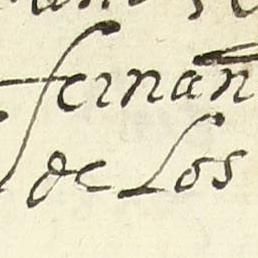 fernan
de los